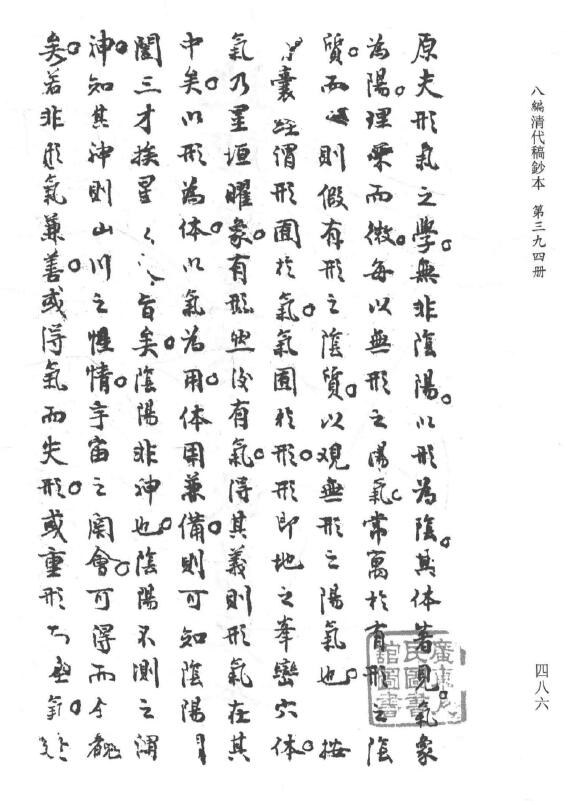 八編清代稿鈔本　第三九四册
四八六
原夫形氣之學。無非陰陽。以形為陰。其体著見。氣象
為陽。理無而微。每以無形之陽氣。常寓於有形之陰
質。而則假有形之陰質。以观無形之陽氣也。按
囊經謂形囿於氣。氣囿於形。形即地之峯巒穴体。
氣乃星垣曜象。有形然後有氣。得其義則形氣在其
中矣。以形為体。以氣為用。体用兼備。則可知陰陽
闔三才挨星之旨矣。陰陽非神也。陰陽不測之謂
神。知其神則山川之性情。宇宙之關會。可得而今観
矣。若非形氣兼善。或得氣而失形。或重形而氣。
廣東省
民圖書
館圖書